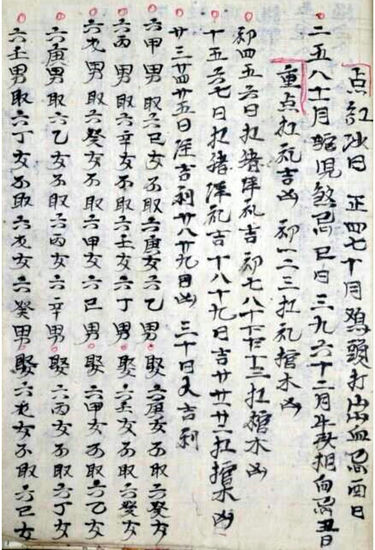 点红沙日 正四七十月鸡頭打出血忌酉日
二五八十月蛇児煞忌巳日三九六十二月牛再相血忌丑日
重点扛礼吉凶 初一二三扛礼棺木凶
初四五六日扛猪洋礼吉初七八十十二扛棺木凶
十五六七日扛猪洋礼吉十八十九日吉廿廿廿二扛棺木凶
廿三廿四廿五日洋吉利廿八廿九日凶 三十日大吉利
六甲男取六己女不取六庚女六乙男娶六庚女不取六癸女
六丙男取六辛女不取六壬女六丁男娶六壬女不取六癸女
六戊男取六癸女不取六甲女六己男娶六甲女不取六乙女
六庚男取六乙女不取六丙女六辛男娶六丙女不取六丁女
六壬男取六丁女不取六戊女六癸男娶六戊女不取六己女